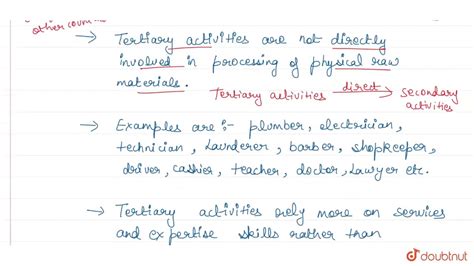 other coun
→ Tertiary activities are not directly
involved in processing of physical raw
materials.
Tertiary activities direct → secondary
activities
→ Examples are :- plumber, electrician,
technician, launderer, barber, shopkeeper,
driver, cashier, teacher, doctor, Lawyer etc.
→ Tertiary activities rely more on services
and expertise skills rather than
doubtnut